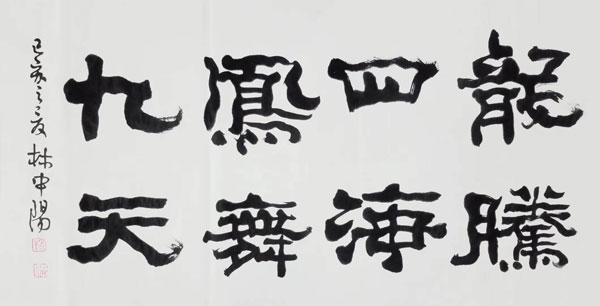 龍騰
四海
鳳舞
九天
己亥之夏林中陽